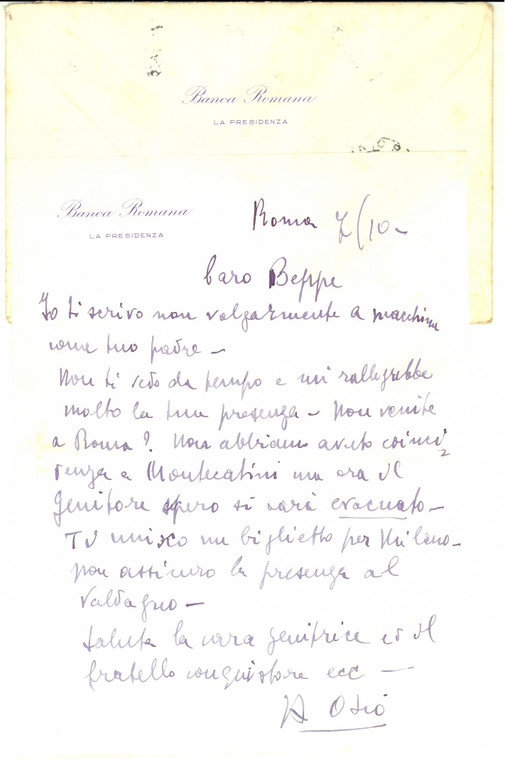 Banca Romana
LA PRESIDENZA
Banca Romana
LA PRESIDENZA
Roma 7/10 -
Caro Beppe
Io ti scrivo non volgarmente a macchina
come tuo padre -
Non ti vedo da tempo e mi rallegrebbe
molto la tua presenza - Non venite
a Roma? Non abbiamo avuto coinci
denza a Montecatini ma ora il
Genitore spero si sarà evacuato -
Ti unisco un biglietto per Milano -
non assicuro la presenza al
Valdagno -
Saluta la cara genitrice ed il
fratello conquistore ecc -
A Osio